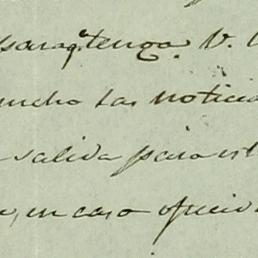 paraq.e tenga V.
mucho las noticia
salida para el
en caso ofrecid